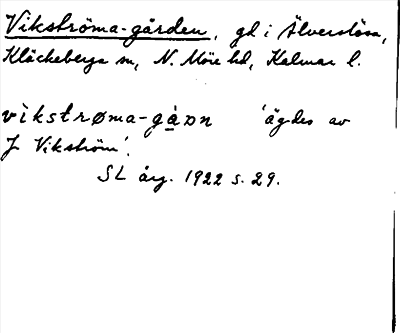 Vikströma-gården, gd i Älverslösa,
Kläckeberga sn, N. Möre hd, Kalmar l.
vìkstrøma-gàɒn 'ägdes av
J Vikström'.
SL årg. 1922 s. 29.